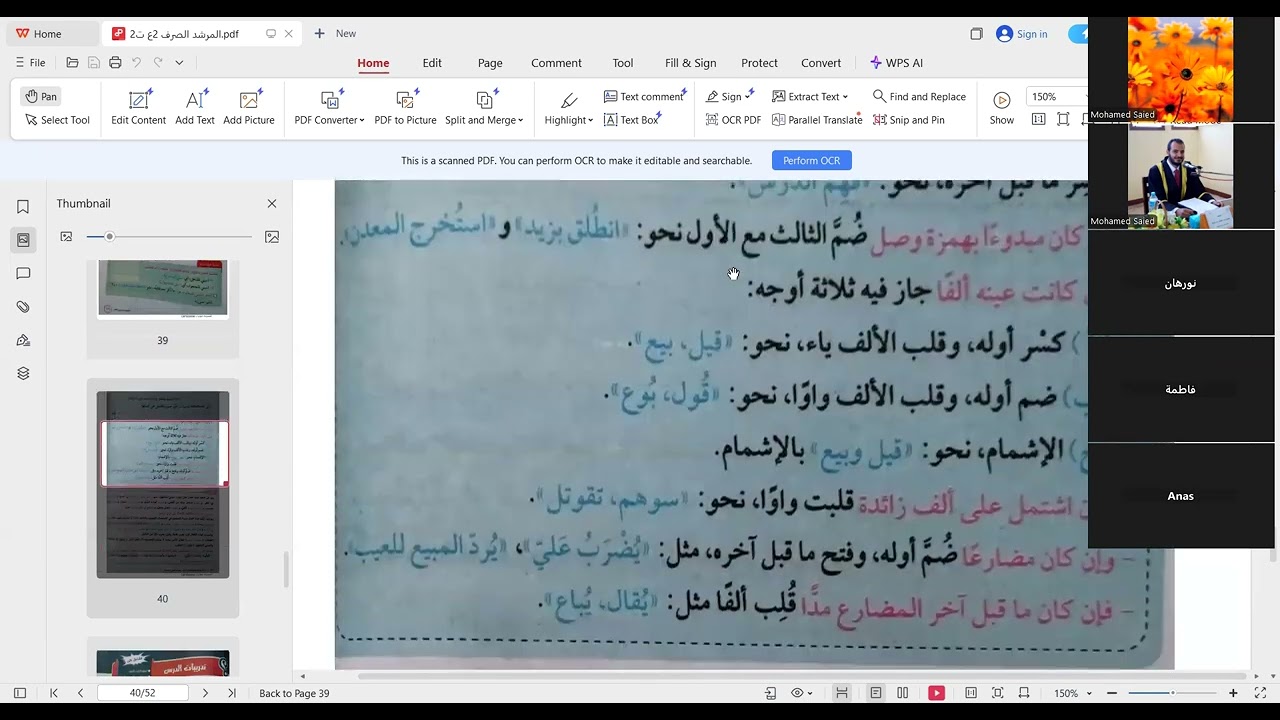 Home
المرشد الصرف 2ع ت2.pdf
New
Sign in
File
Home
Edit
Page
Comment
Tool
Fill & Sign
Protect
Convert
WPS AI
Pan
Select Tool
Edit Content
Add Text
Add Picture
PDF Converter
PDF to Picture
Split and Merge
Highlight
Text comment
Text Box
Sign
OCR PDF
Extract Text
Parallel Translate
Find and Replace
Snip and Pin
Show
150%
1:1
This is a scanned PDF. You can perform OCR to make it editable and searchable.
Perform OCR
Thumbnail
39
40
تدريبات الدرس
ما قبل آخره، نحو: «فُهِم الدرس».
كان مبدوءًا بهمزة وصل ضُمَّ الثالث مع الأول نحو: «انطُلق بزيد» و «استُخرج المعدن».
كانت عينه ألفًا جاز فيه ثلاثة أوجه:
) كسْر أوله، وقلب الألف ياء، نحو: «قيل، بيع».
ب) ضم أوله، وقلب الألف واوًا، نحو: «قُول، بُوع».
) الإشمام، نحو: «قيل وبيع» بالإشمام.
اشتمل على ألف زائدة قلبت واوًا، نحو: «سوهم، تقوتل».
– وإن كان مضارعًا ضُمَّ أوله، وفتح ما قبل آخره، مثل: «يُضْرَبُ عَليّ»، «يُردّ المبيع للعيب».
– فإن كان ما قبل آخر المضارع مدًّا قُلِب ألفًا مثل: «يُقال، يُباع».
Mohamed Saied
Mohamed Saied
نورهان
فاطمة
Anas
40/52
Back to Page 39
150%